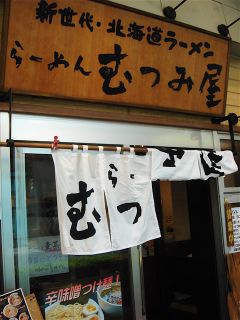 新世代・北海道ラーメン
らーめん むつみ屋
らー
むつ
辛味噌つけ麺!